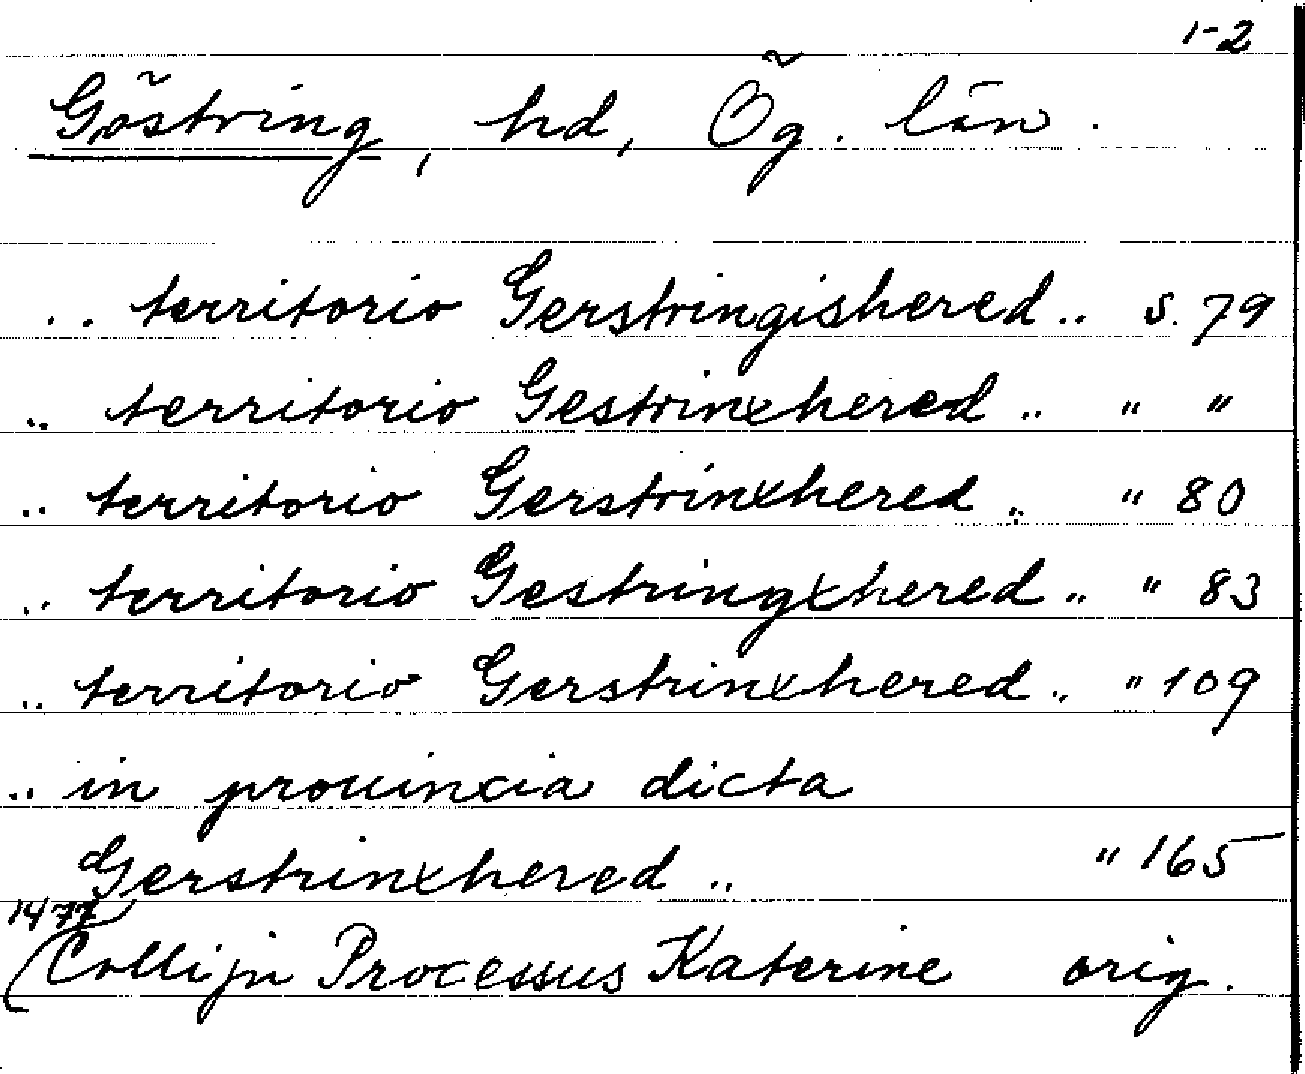 1-2
Göstring, hd, Ög. län.
.. territorio Gerstringishered .. s. 79
.. territorio Gestrinxhered .. " "
.. territorio Gerstrinxhered .. " 80
.. territorio Gestringxhered .. " 83
.. territorio Gerstrinxhered .. " 109
.. in prouincia dicta
Gerstrinxhered .. " 165
1477
(Collijn Processus Katerine orig.